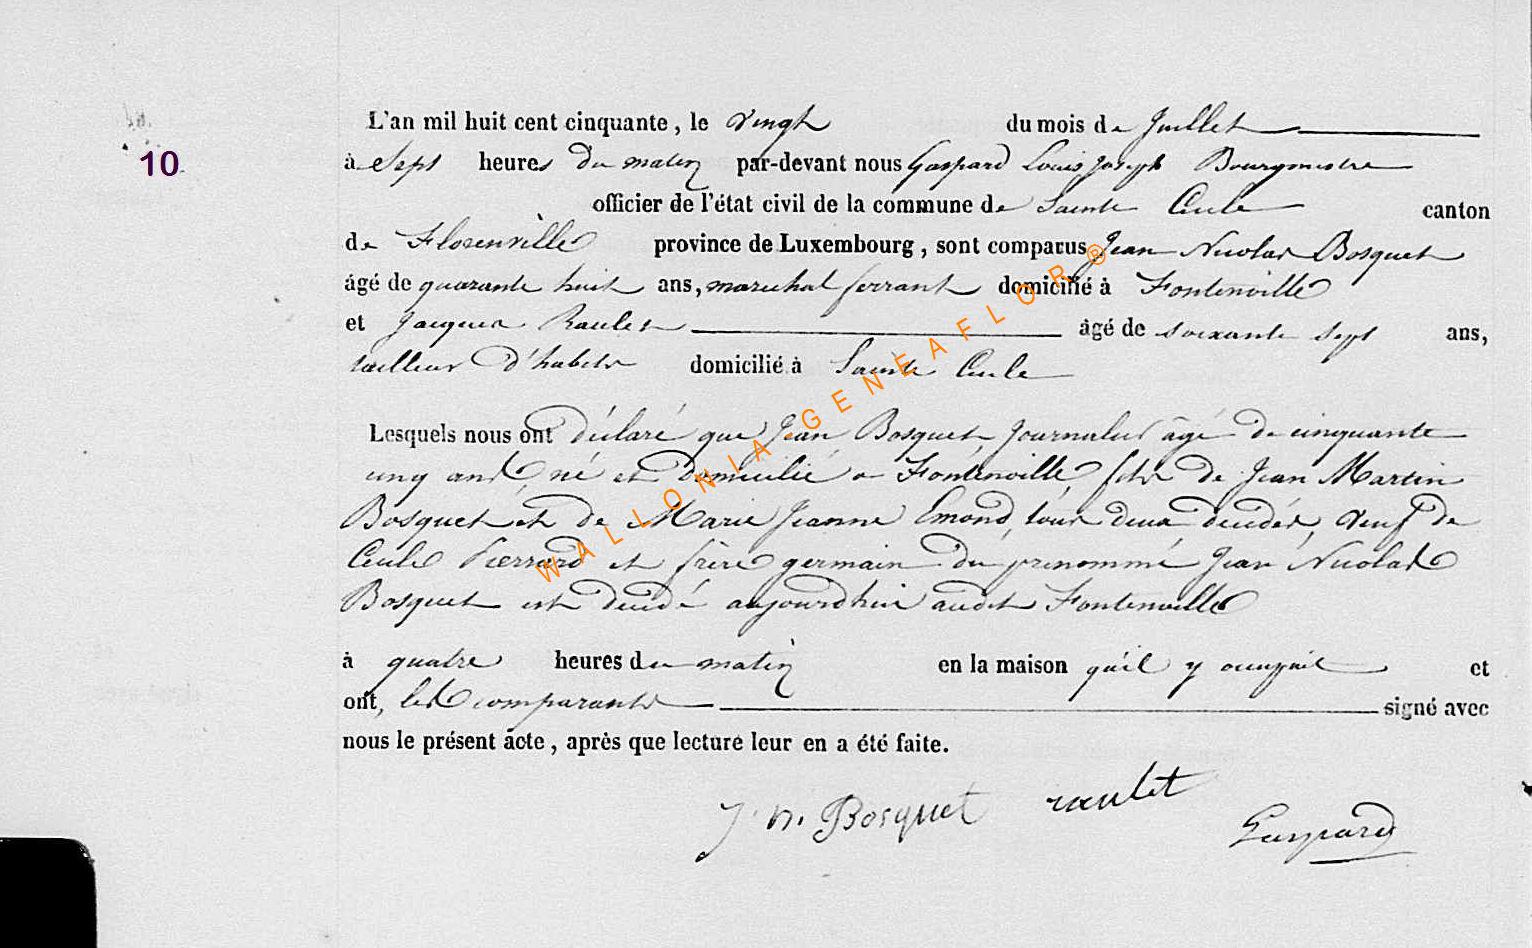 L'an mil huit cent cinquante, le vingt du mois de Juillet
10
à Sept heures du matin par-devant nous Gaspard Louis Joseph Bourgmestre
officier de l'état civil de la commune de Sainte Cecile canton
de Florenville province de Luxembourg, sont comparus Jean Nicolas Bosquet
âgé de quarante huit ans, marechal ferrant domicilié à Fontenoille
et Jacques Raulet âgé de soixante sept ans,
tailleur d'habits domicilié à Sainte Cecile
Lesquels nous ont déclaré que Jean Bosquet, Journalier âgé de cinquante
cinq ans, né et domicilié a Fontenoille fils de Jean Martin
Bosquet et de Marie Jeanne Emond, tous deux décédés, veuf de
Cecile Pierrard et frère germain du prénommé Jean Nicolas
Bosquet est décédé aujourdhui audit Fontenoille
à quatre heures du matin en la maison qu'il y occupait et
ont, les comparants signé avec
nous le présent acte, après que lecture leur en a été faite.
J. n. Bosquet raulet Gaspard
WALLONIA GENEAFLOR ®